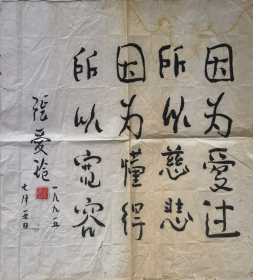 因为爱过
所以慈悲
因为懂得
所以宽容
张爱玲
一九九五
七月五日